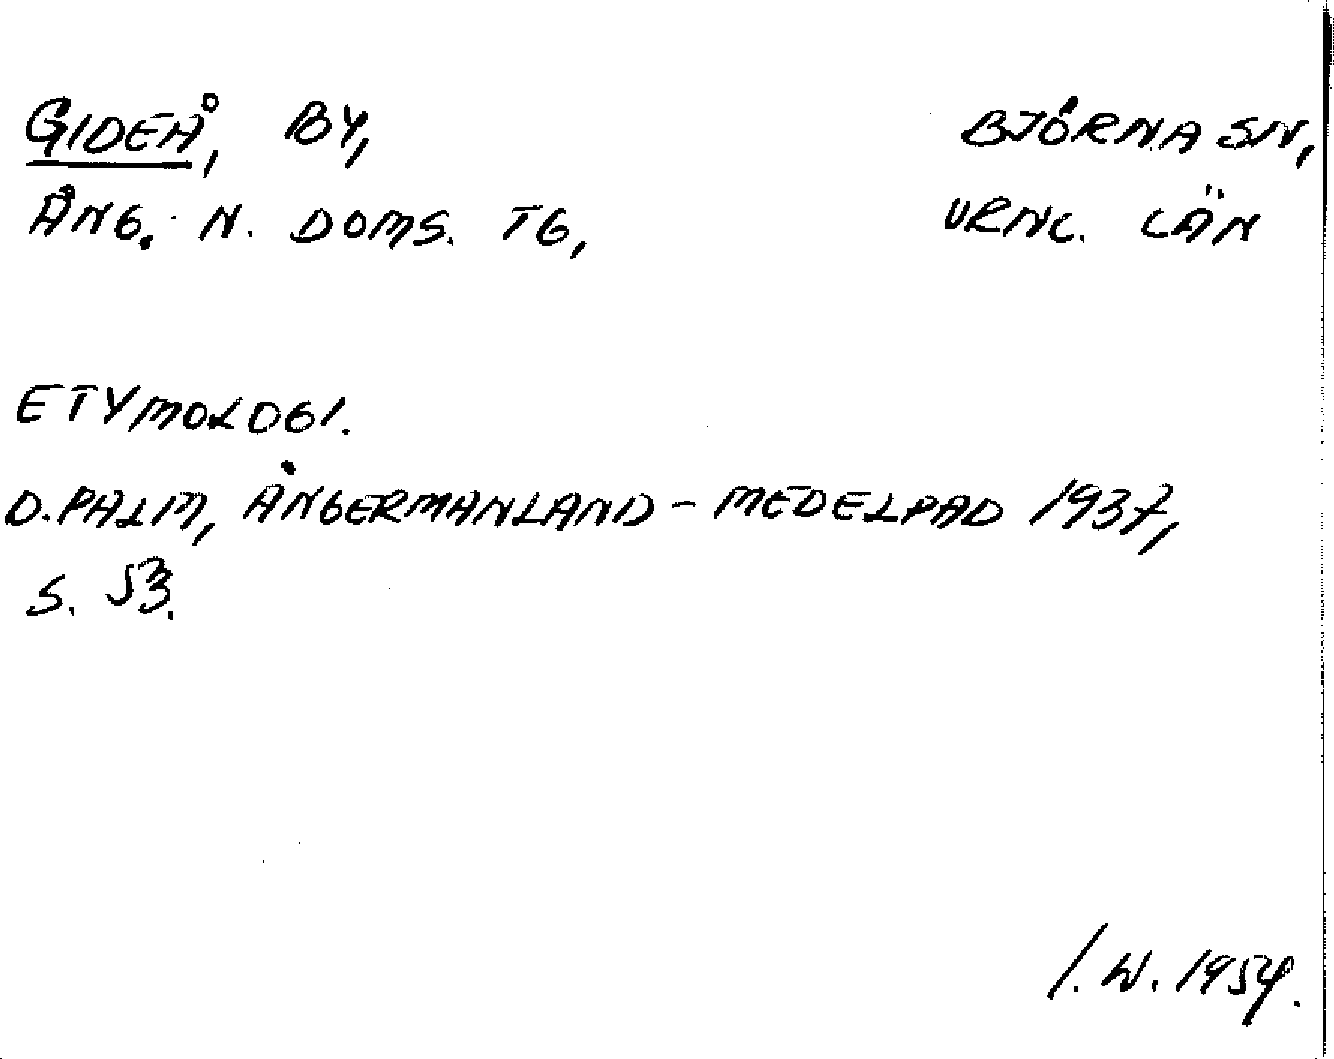 GIDEÅ, BY, BJÖRNA SN,
ÅNG. N. DOMS. TG, VRNL. LÄN
ETYMOLOGI.
D. PALM, ÅNGERMANLAND - MEDELPAD 1937,
S. 53.
I. W. 1954.